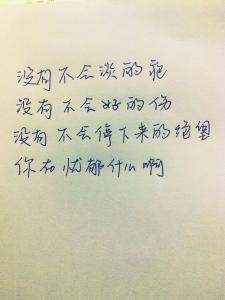 没有不会淡的疤
没有不会好的伤
没有不会停下来的绝望
你在忧郁什么啊